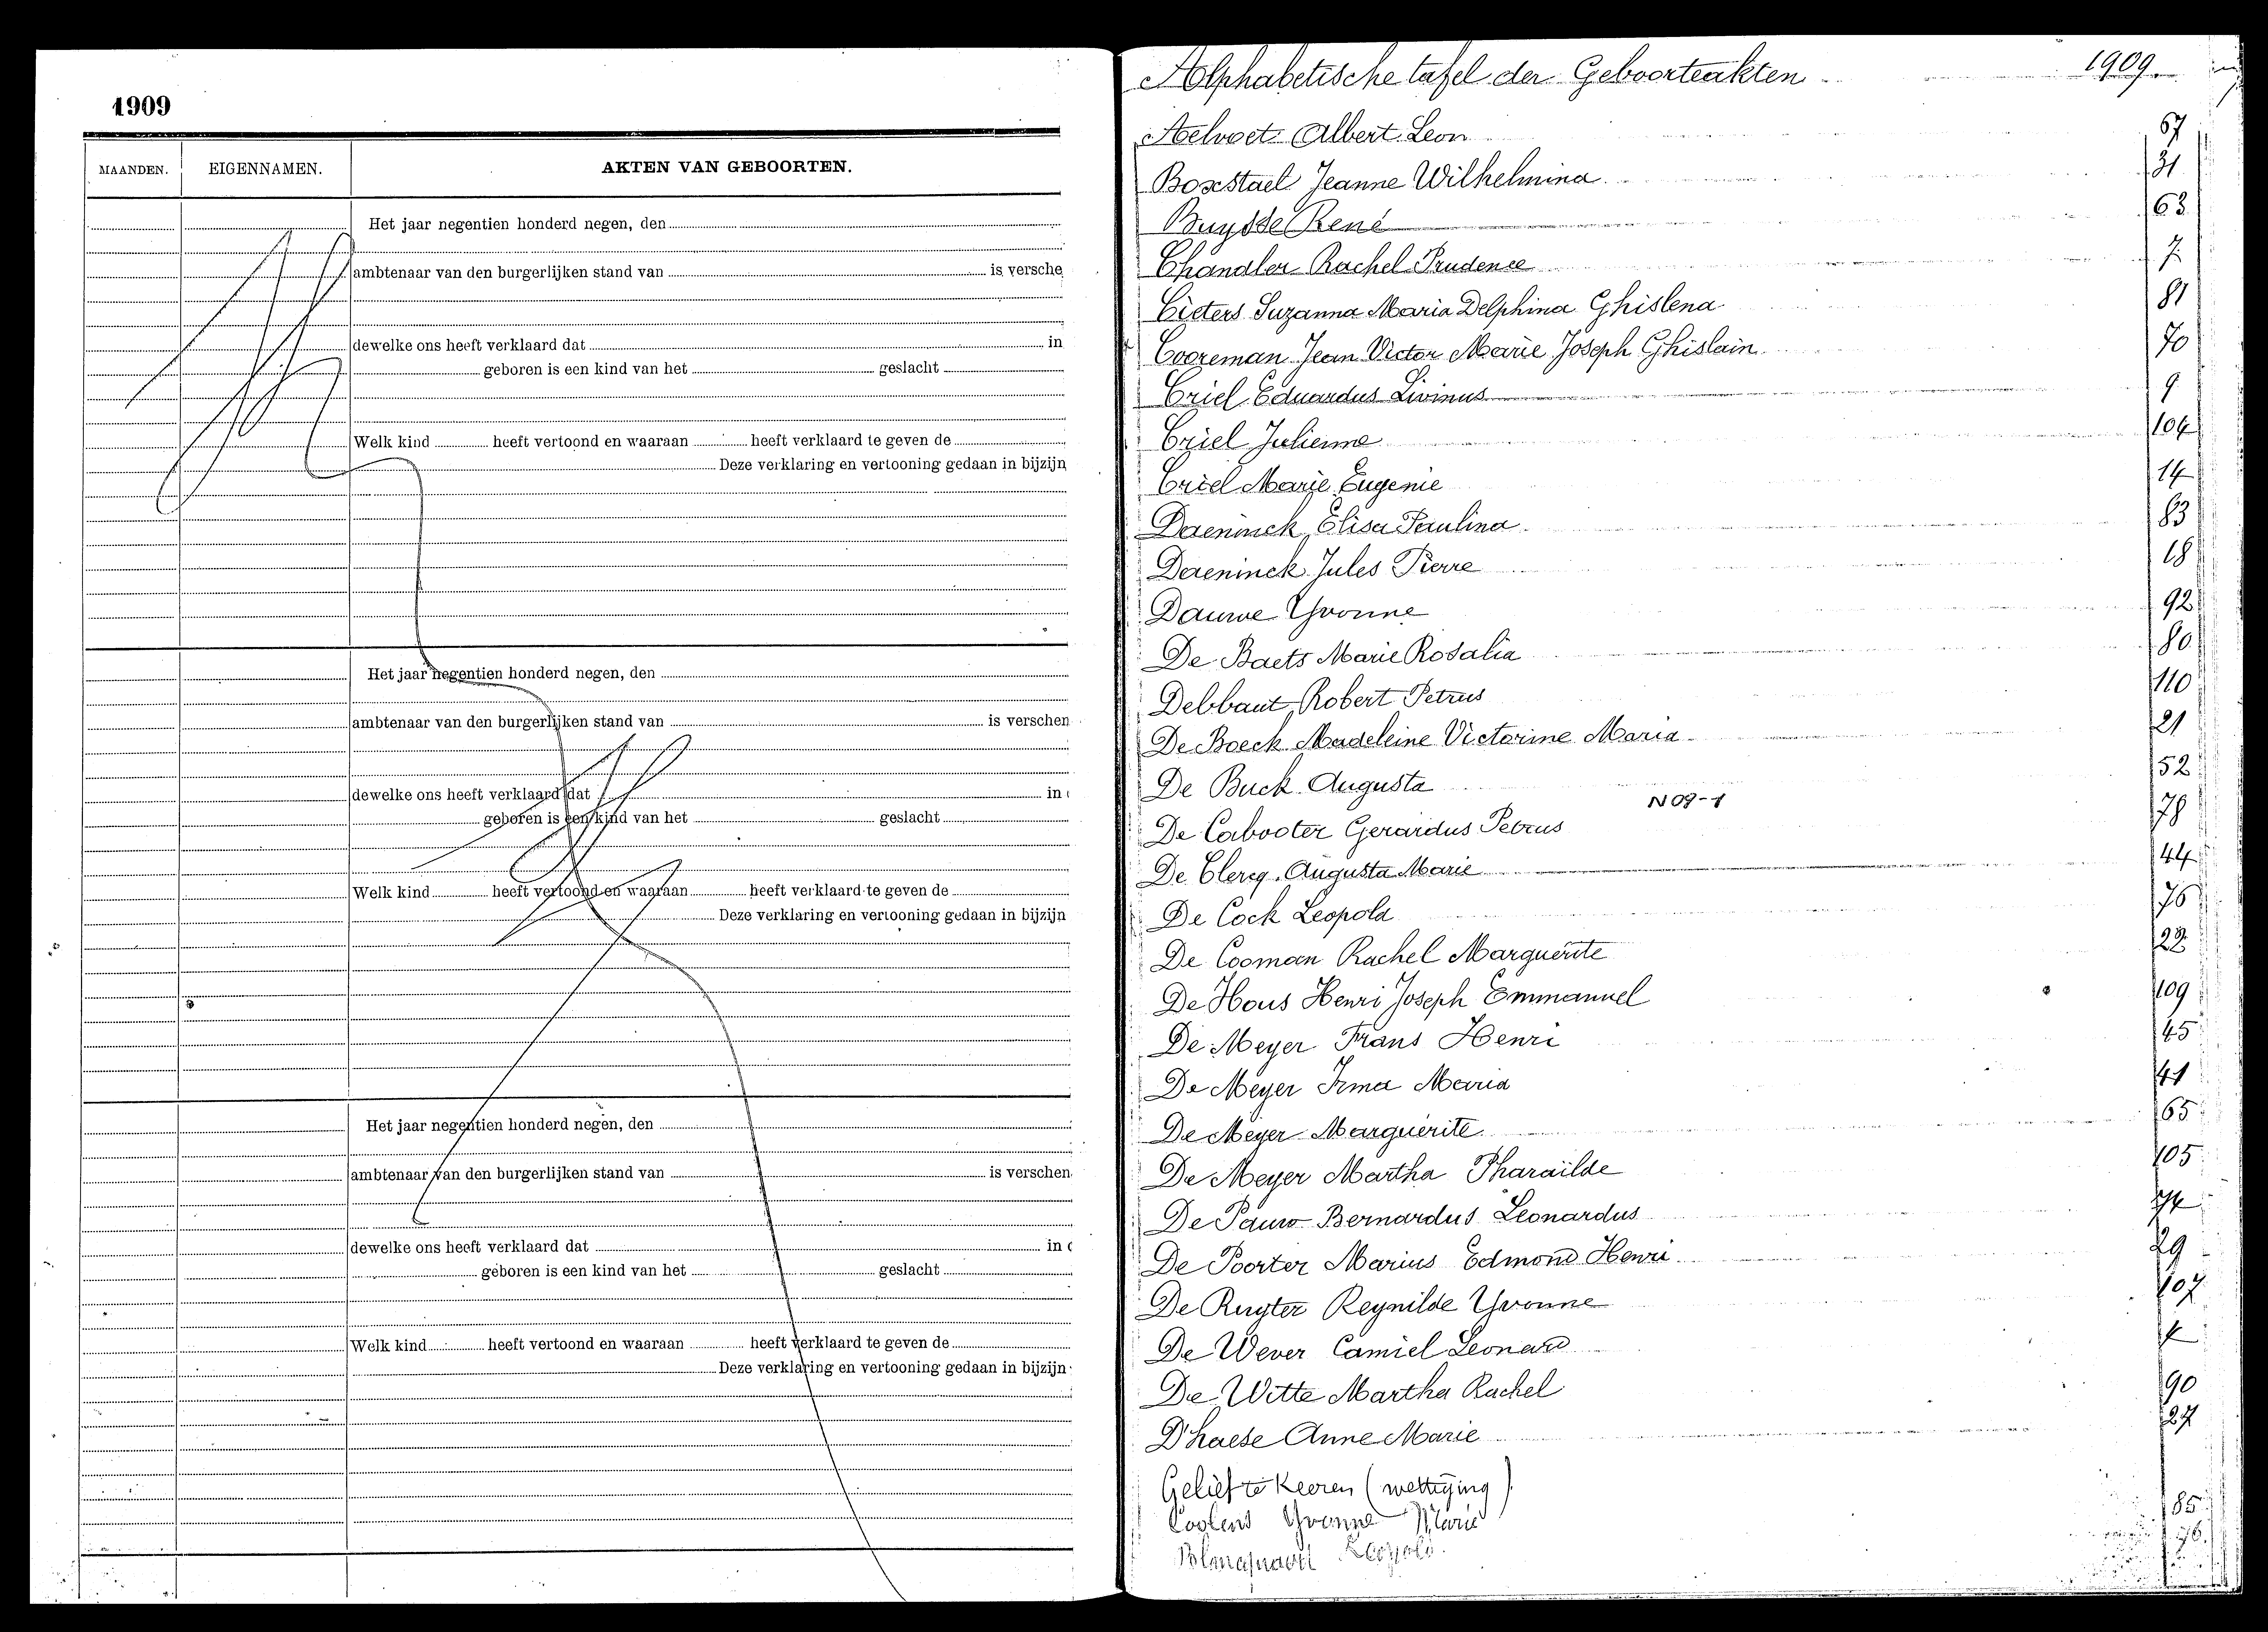 1909
MAANDEN. EIGENNAMEN. AKTEN VAN GEBOORTEN.
Het jaar negentien honderd negen, den
ambtenaar van den burgerlijken stand van is versche
dewelke ons heeft verklaard dat in
geboren is een kind van het geslacht
Welk kind heeft vertoond en waaraan heeft verklaard te geven de
Deze verklaring en vertooning gedaan in bijzijn
Het jaar negentien honderd negen, den
ambtenaar van den burgerlijken stand van is verschen
dewelke ons heeft verklaard dat in
geboren is een kind van het geslacht
Welk kind heeft vertoond en waaraan heeft verklaard te geven de
Deze verklaring en vertooning gedaan in bijzijn
Het jaar negentien honderd negen, den
ambtenaar van den burgerlijken stand van is verschen
dewelke ons heeft verklaard dat in
geboren is een kind van het geslacht
Welk kind heeft vertoond en waaraan heeft verklaard te geven de
Deze verklaring en vertooning gedaan in bijzijn
Alphabetische tafel der Geboorteakten 1909
Aelvoet Albert Leon 67
Boxstael Jeanne Wilhelmina 31
Buysse René 63
Chandler Rachel Prudence 7
Cieters Suzanna Maria Delphina Ghislena 81
Cooreman Jean Victor Marie Joseph Ghislain 70
Criel Eduardus Livinus 9
Criel Julienne 104
Criel Marie Eugenie 14
Daeninck Elisa Paulina 83
Daeninck Jules Pierre 18
Dauwe Yvonne 92
De Baets Marie Rosalia 80
Debbaut Robert Petrus 110
De Boeck Madeleine Victorine Maria 21
De Buck Augusta 52
N 09-1
De Cabooter Gerardus Petrus 78
De Clercq Augusta Marie 44
De Cock Leopold 76
De Cooman Rachel Marguerite 22
De Hous Henri Joseph Emmanuel 109
De Meyer Frans Henri 45
De Meyer Irma Maria 41
De Meyer Marguerite 65
De Meyer Martha Pharaïlde 105
De Pauw Bernardus Leonardus
De Poorter Marius Edmond Henri 29
De Ruyter Reynilde Yvonne 107
De Wever Camiel Leonard
De Witte Martha Rachel 90
D'haese Anne Marie 27
Gelieft te keeren (wettiging)
Coolens Yvonne Marie 85
Leopold